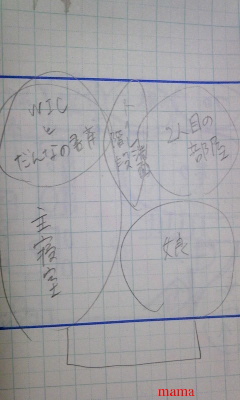 WIC
と
だんなの書斎
主寝室
トイレ
階段
2人目の
部屋
mama